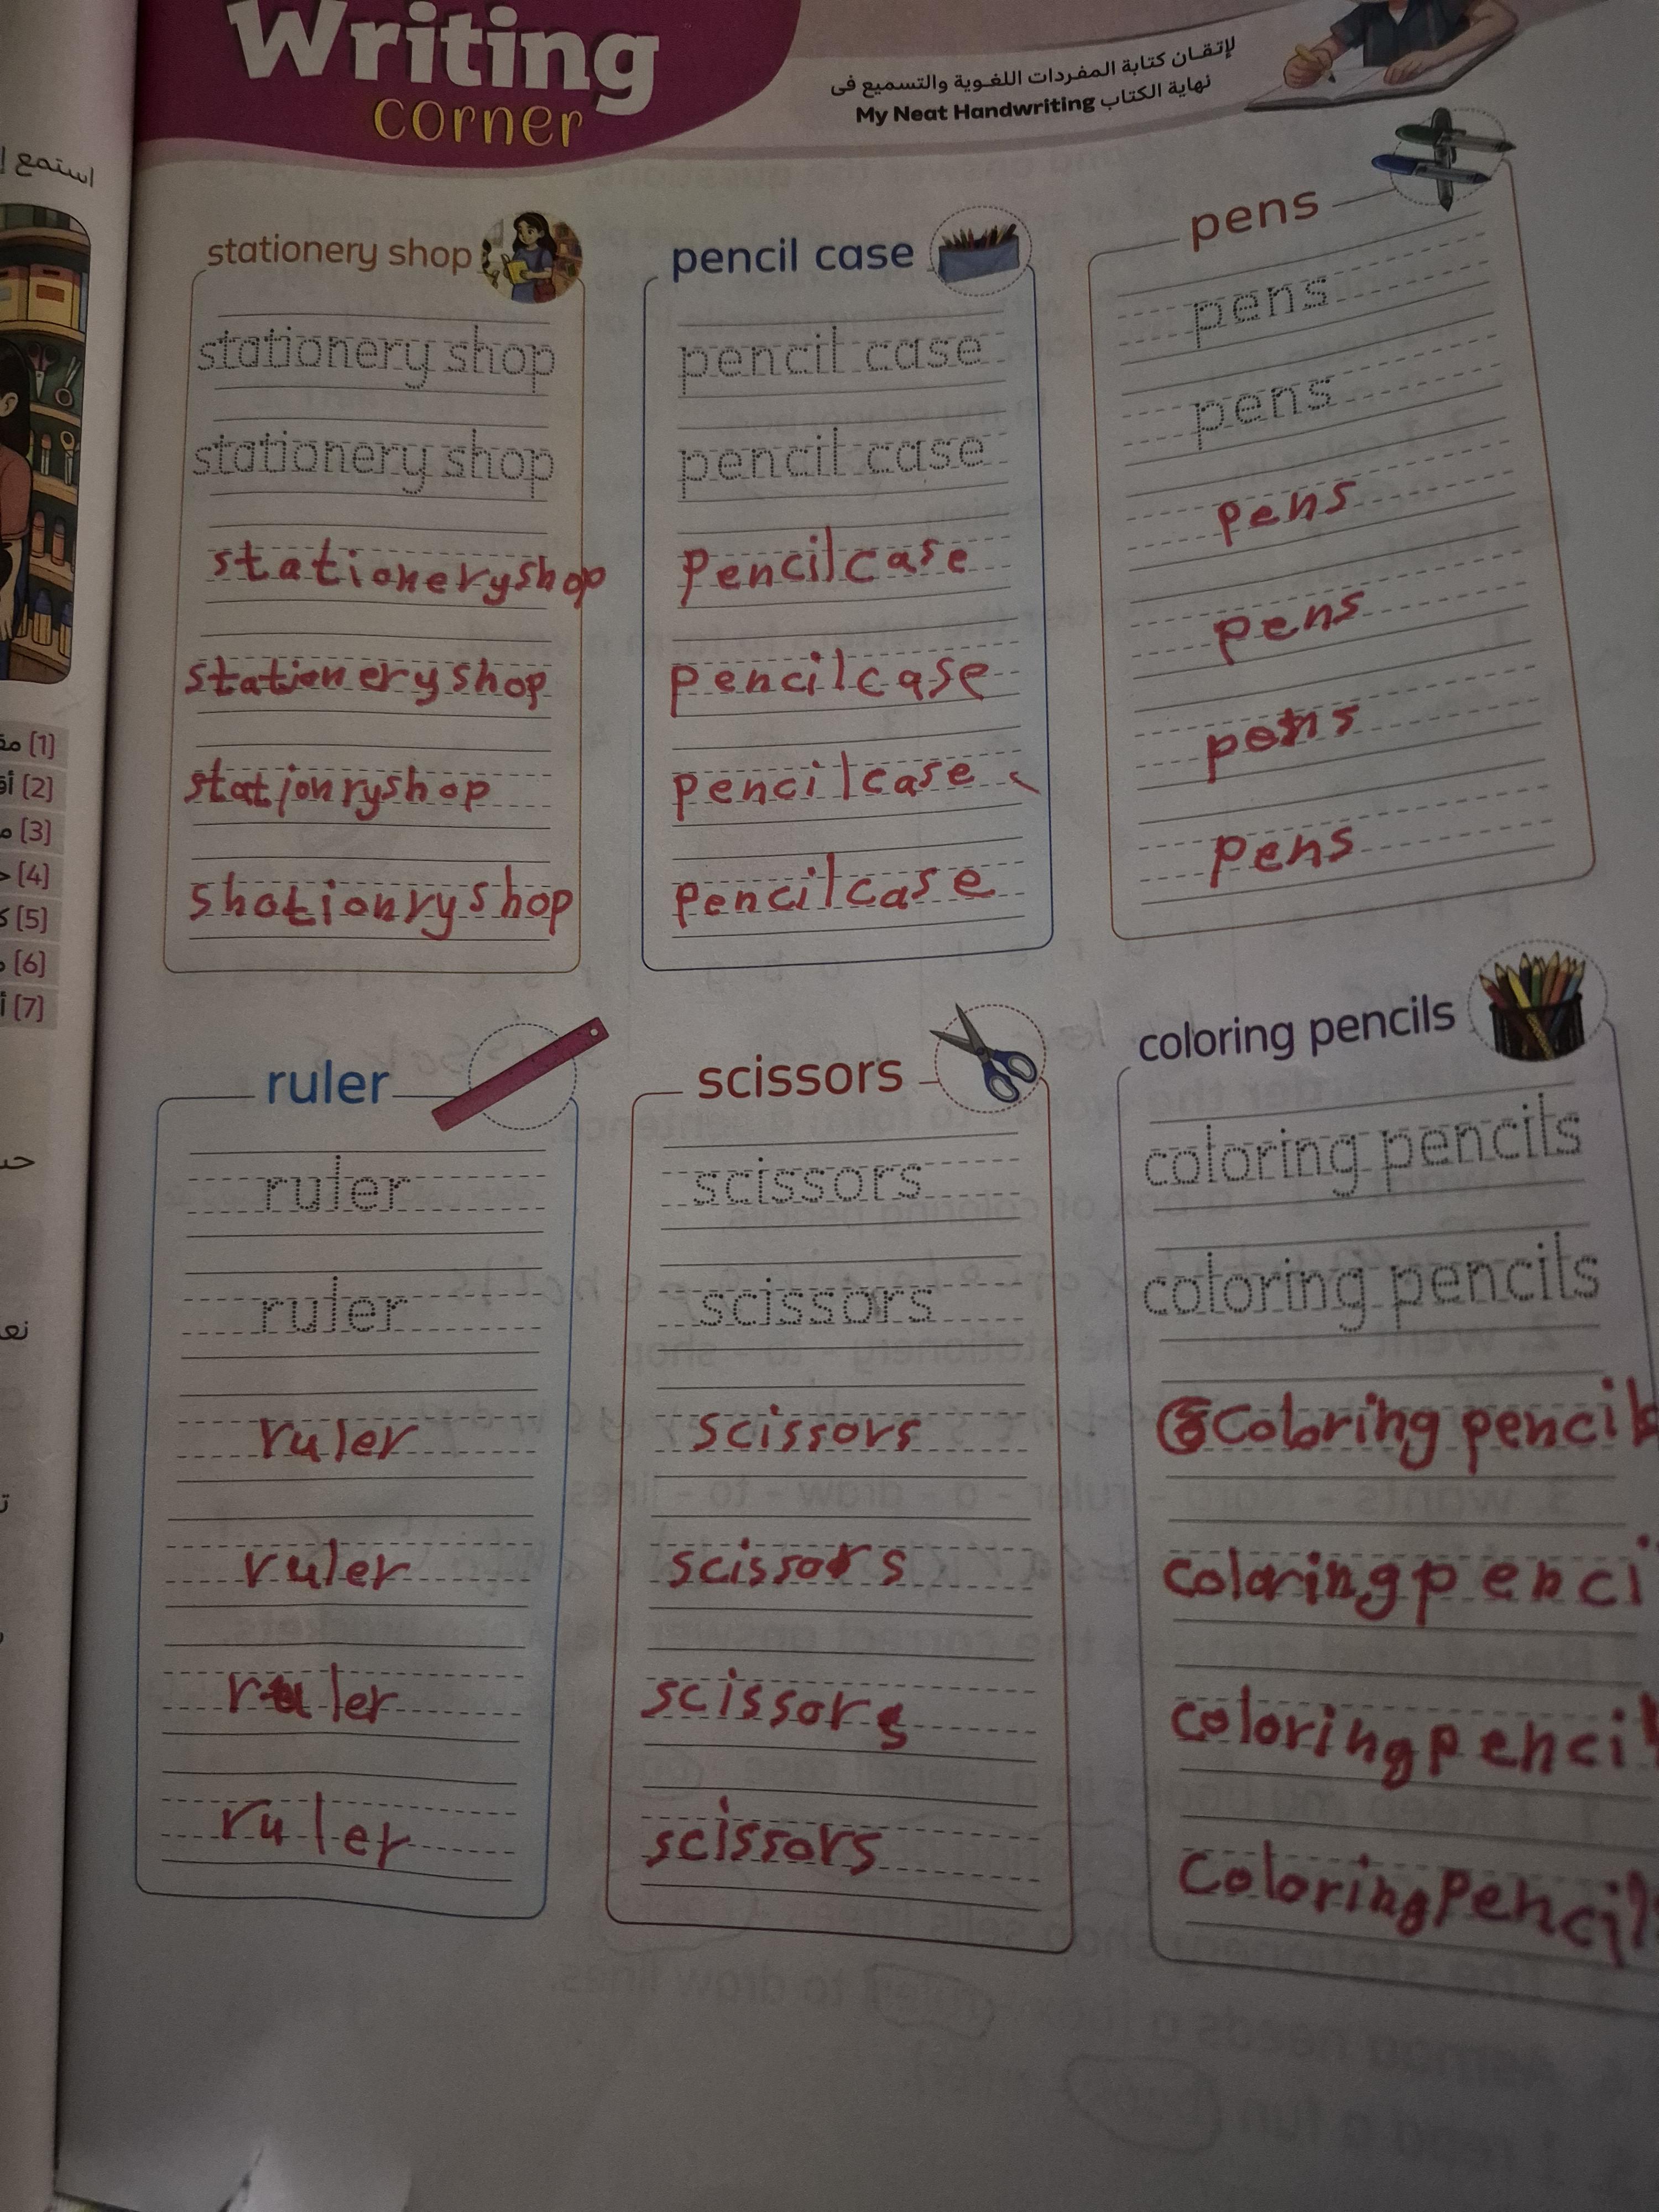 Writing
corner
لإتقان كتابة المفردات اللغوية والتسميع فى
نهاية الكتاب My Neat Handwriting
استمع
stationery shop
stationery shop
stationery shop
stationeryshop
stationeryshop
stationryshop
shationryshop
pencil case
pencil case
pencil case
pencilcase
pencilcase
pencilcase
pencilcase
pens
pens
pens
pens
pens
pens
pens
[1]
[2]
[3]
[4]
[5]
[6]
[7]
ruler
ruler
ruler
ruler
ruler
ruler
ruler
scissors
scissors
scissors
scissors
scissors
scissors
scissors
coloring pencils
coloring pencils
coloring pencils
coloring pencils
coloringpenci
coloringpencil
coloringpencils